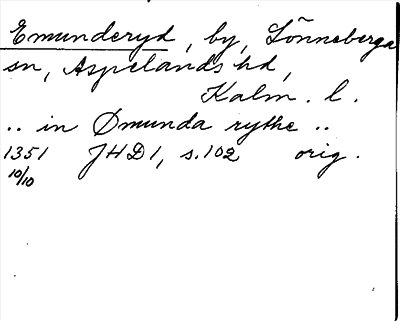 Emunderyd, by, Lönneberga
sn, Aspelands hd,
Kalm. l.
.. in Ømunda rythe ..
1351 JHD1, s.102 orig.
10/10